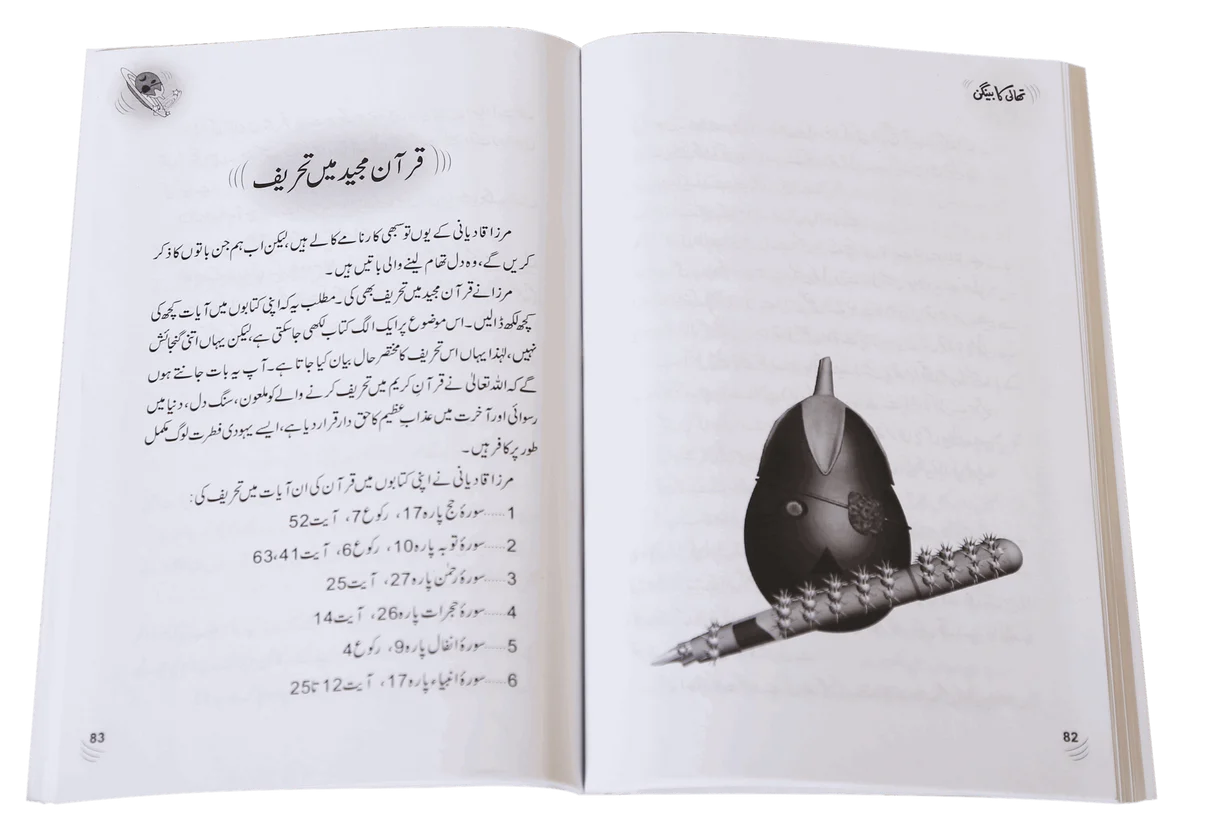 تھالی کا بینگن
82
قرآن مجید میں تحریف
مرزا قادیانی کے یوں تو سبھی کارنامے کالے ہیں، لیکن اب ہم جن باتوں کا ذکر
کریں گے، وہ دل تھام لینے والی باتیں ہیں۔
مرزا نے قرآن مجید میں تحریف بھی کی۔ مطلب یہ کہ اپنی کتابوں میں آیات کچھ کی
کچھ لکھ ڈالیں۔ اس موضوع پر ایک الگ کتاب لکھی جاسکتی ہے، لیکن یہاں اتنی گنجائش
نہیں، لہٰذا یہاں اس تحریف کا مختصر حال بیان کیا جاتا ہے۔ آپ یہ بات جانتے ہوں
گے کہ اللہ تعالیٰ نے قرآن کریم میں تحریف کرنے والے کو ملعون، سنگ دل، دنیا میں
رسوائی اور آخرت میں عذاب عظیم کا حق دار قرار دیا ہے، ایسے یہودی فطرت لوگ مکمل
طور پر کافر ہیں۔
مرزا قادیانی نے اپنی کتابوں میں قرآن کی ان آیات میں تحریف کی:
1......سورۂ حج پارہ 17، رکوع 7، آیت 52
2......سورۂ توبہ پارہ 10، رکوع 6، آیت 41، 63
3......سورۂ رحمٰن پارہ 27، آیت 25
4......سورۂ حجرات پارہ 26، آیت 14
5......سورۂ انفال پارہ 9، رکوع 4
6......سورۂ انبیاء پارہ 17، آیت 12 تا 25
83